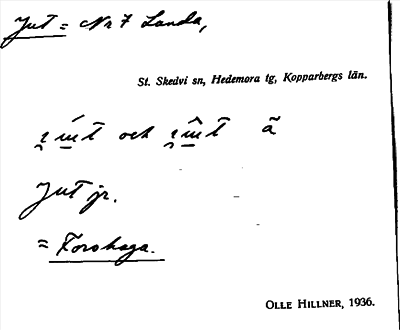 Jut = Nr 7 Landa,
St. Skedvi sn, Hedemora tg, Kopparbergs län.
och ã
Jut jr.
= Forshaga.
OLLE HILLNER, 1936.